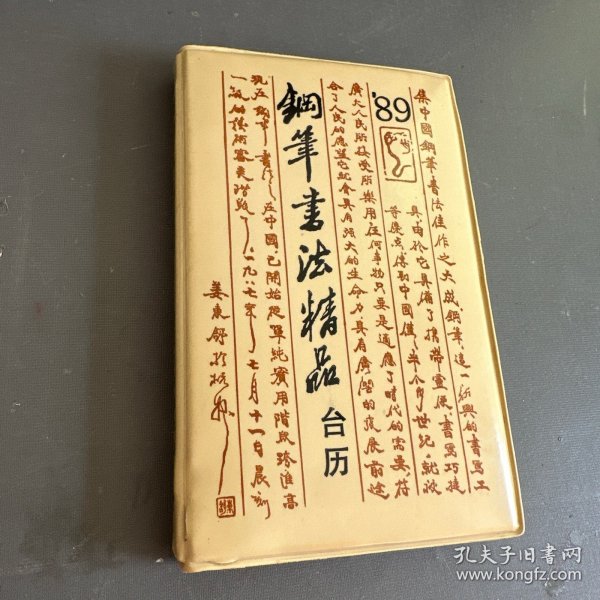 '89
鋼筆书法精品
台历
集中國鋼筆书法佳作之大成，鋼筆，這一新興的書寫工
具，由於它具有了携带靈便、書寫巧捷
等優点，傳到中國僅半个多世纪，就被
廣大人民所接受所樂用。任何事物只要是適應了時代的需要，符
合了人民的愿望它就會具有强大的生命力，具有廣濶的發展前途
現在鋼筆書法在中國已開始從單纯實用階段跨進高
一级的藝術審美階段
一九八七年七月十一日晨刻
姜東舒於杭州
孔夫子旧書网
www.kongfz.com